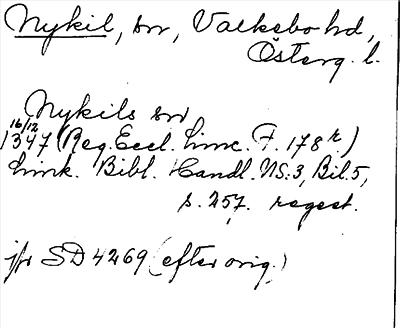 Nykil, sn, Valkebo hd,
Österg. l.
Nykils sn
16/12
1347 (Reg. Eccl. Linc. F. 178 r)
Link. Bibl. Handl. NS:3, Bil. 5,
s. 257. regest.
jfr SD 4269 (efter orig.)